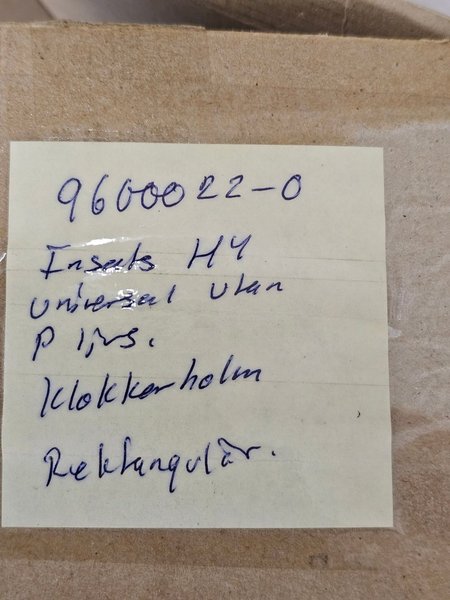 9600022-0
Insats H4
universal utan
P ljus.
Klokkerholm
Rektangulär.